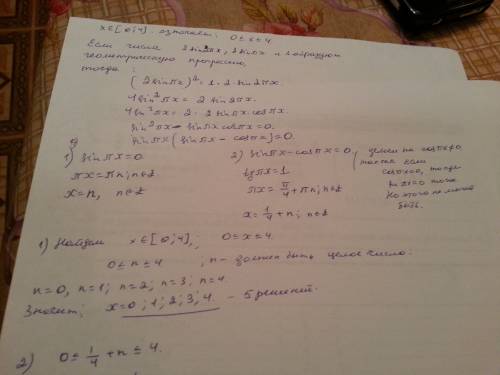 x∈[0;4]. означает: 0≤x≤4.
Если числа 2 sin2πx, 2sinπx и 1 образуют
геометрическую прогрессию,
тогда :
(2sinπx)²=1·2·sin2πx.
4sin²πx = 2·sin2πx.
4sin²πx= 2· 2sinπx·cosπx.
sin²πx - sinπx cosπx=0.
sinπx (sinπx - cosπx)=0.
1) sinπx=0.
πx=πn; n∈Z
x=n, n∈Z
2) sinπx-cosπx=0,
tgπx=1
πx= π/4+πn; n∈Z
x= 1/4+n; n∈Z
делим на cosπx≠0,
так как если
cosπx=0, тогда
sinπx=0 тоже.
Но этого не может
быть.
1) Найдем x∈[0;4], 0≤x≤4.
0≤n≤4 ; n- должен быть целое число.
n=0, n=1; n=2; n=3; n=4.
Значит; x=0;1;2;3;4. - 5 решений.
2) 0≤ 1/4 +n ≤ 4.